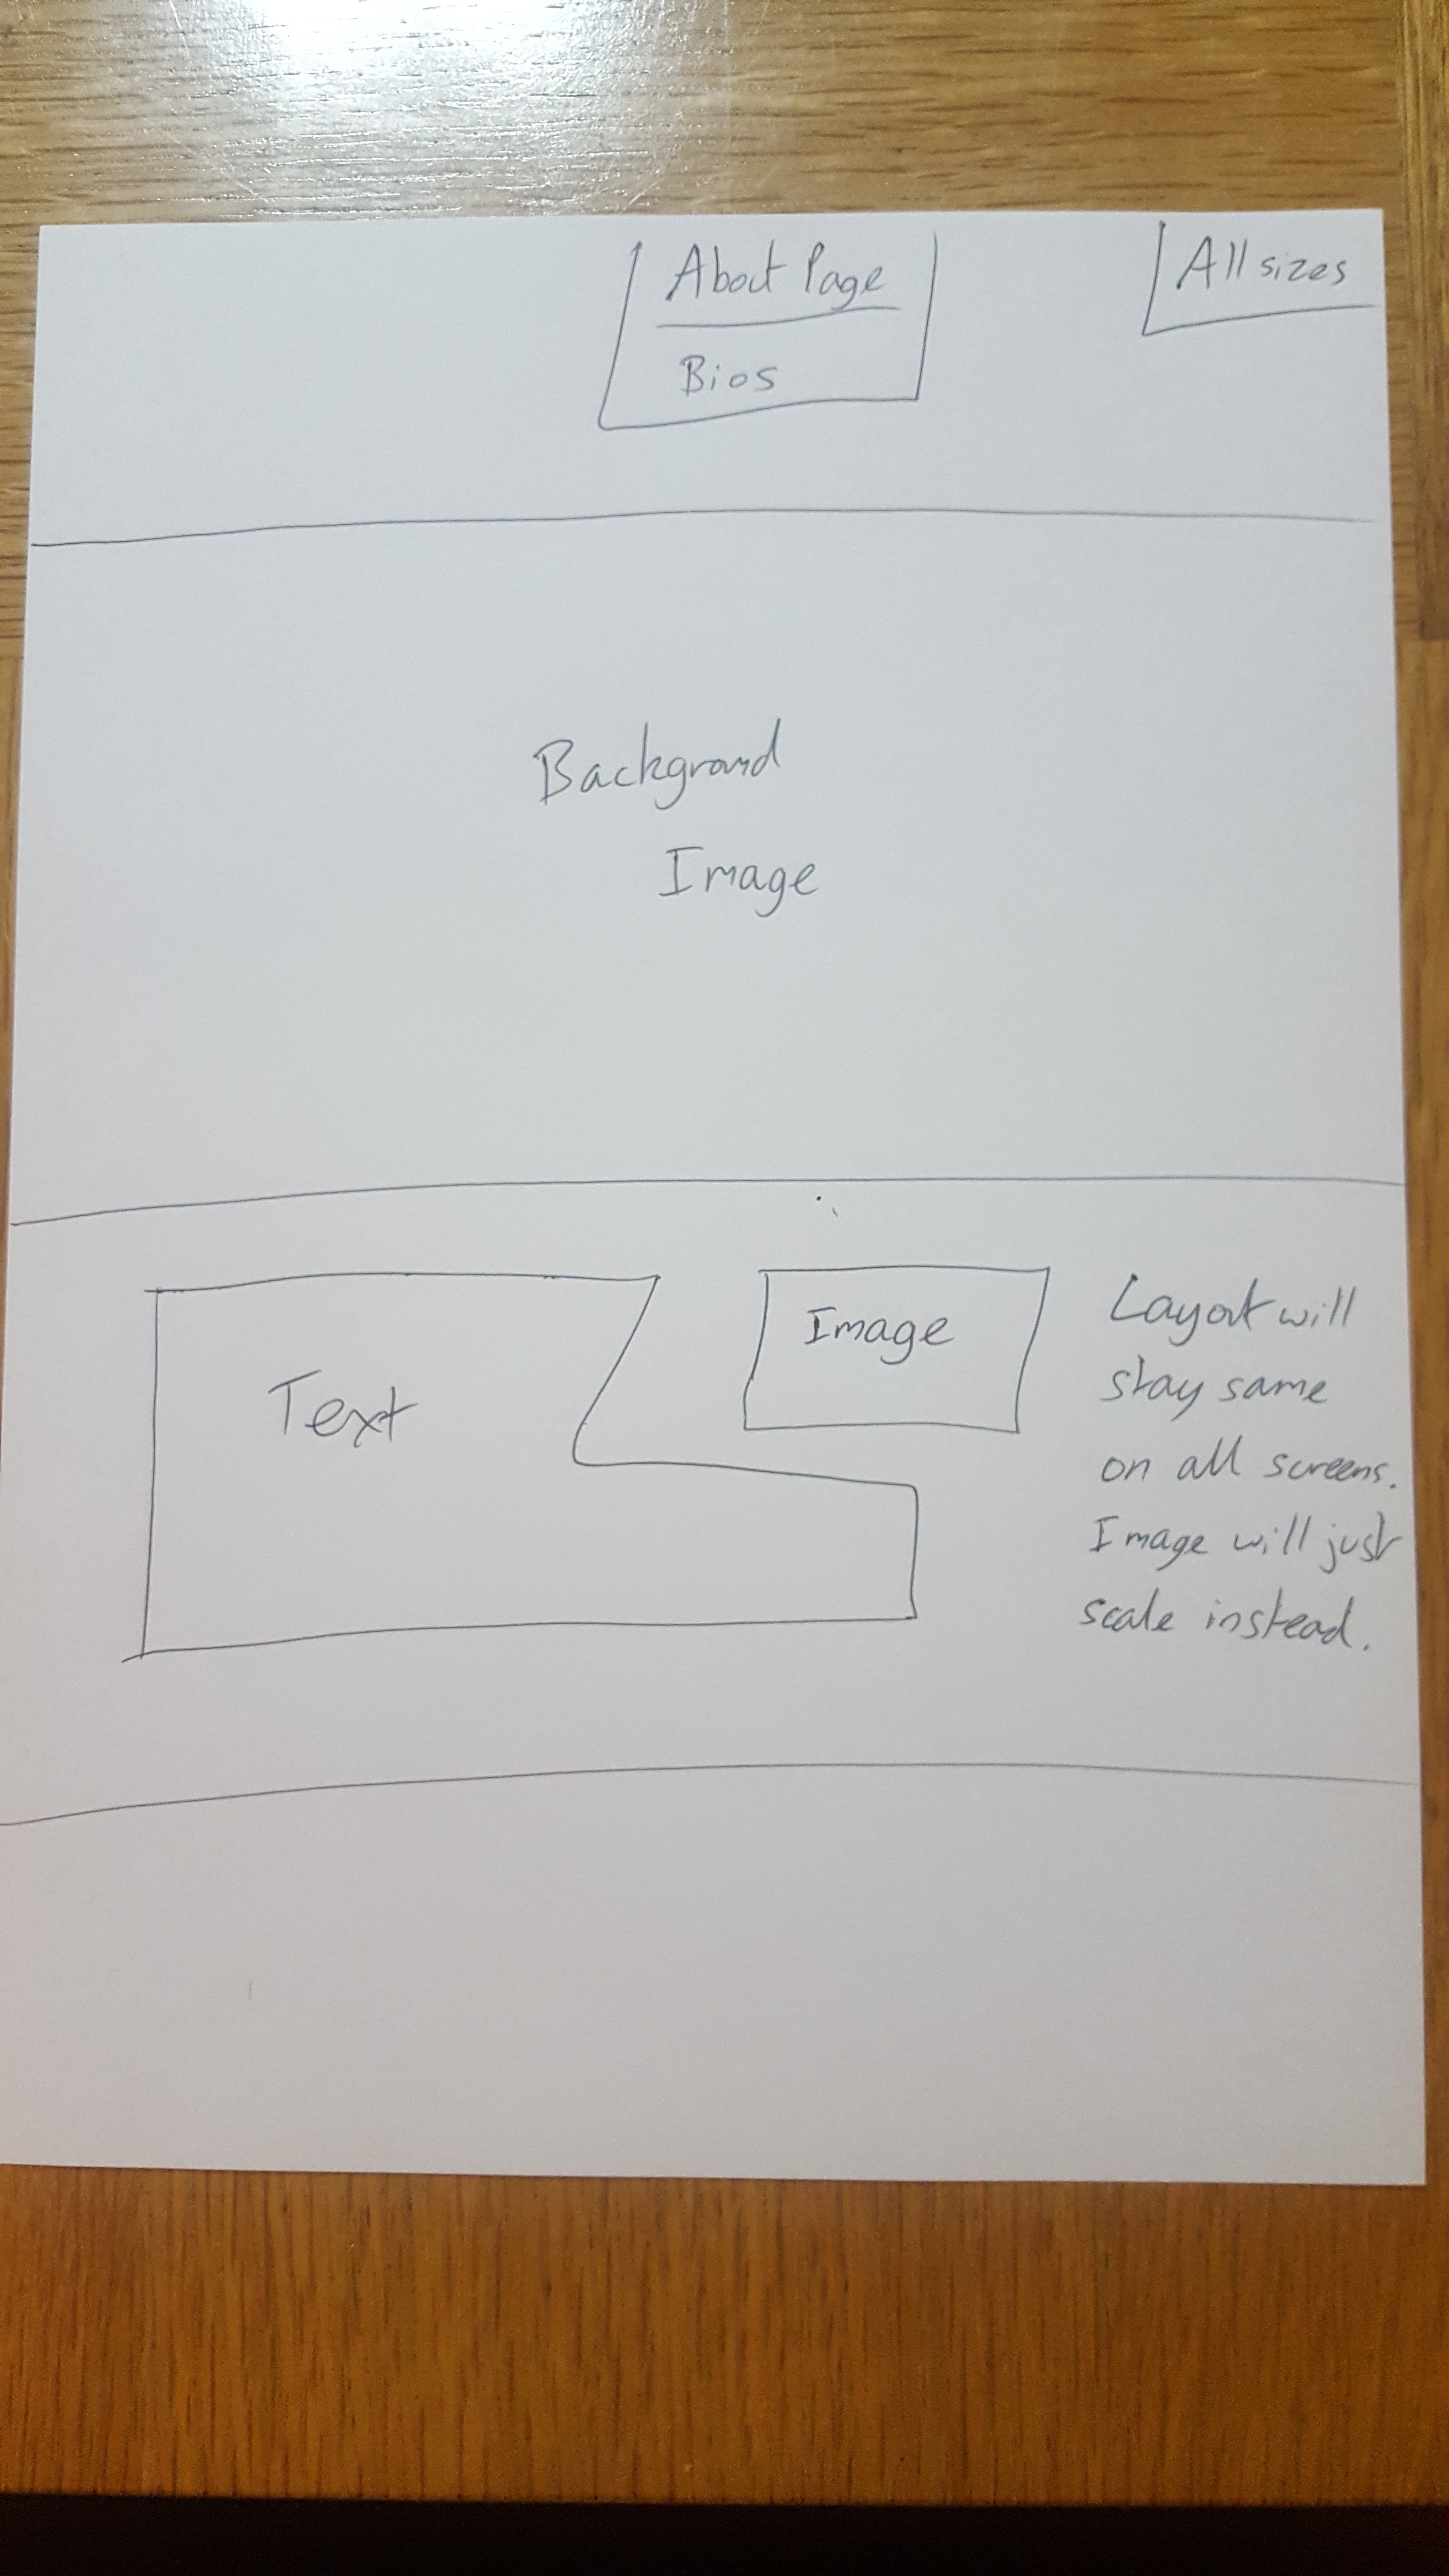 About Page
Bios
All sizes
Background
Image
Text
Image
Layout will
stay same
on all screens.
Image will just
scale instead.